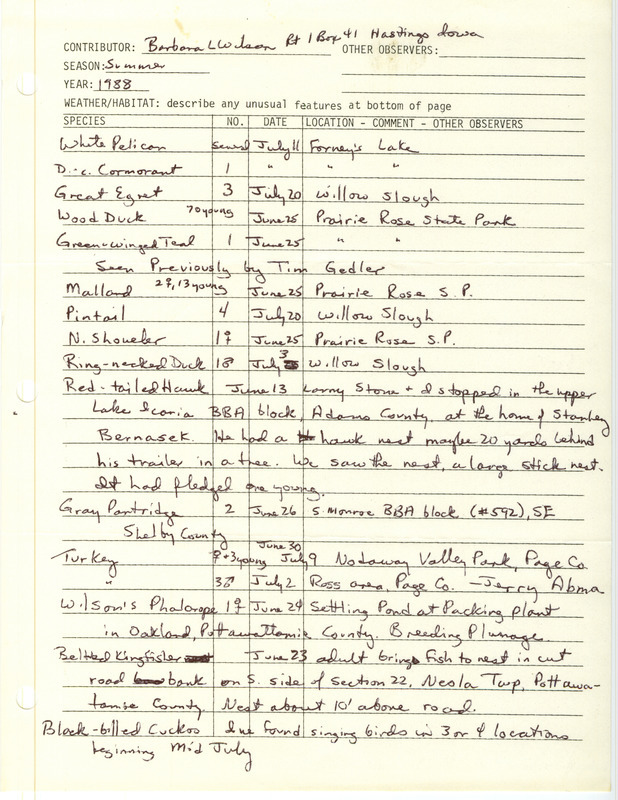 CONTRIBUTOR: Barbara L Wilson Rt 1 Box 41 Hastings Iowa OTHER OBSERVERS:
SEASON: Summer
YEAR: 1988
WEATHER/HABITAT: describe any unusual features at bottom of page
SPECIES NO. DATE LOCATION - COMMENT - OTHER OBSERVERS
White Pelican several July 11 Forney's Lake
D.-c. Cormorant 1 " " "
Great Egret 3 July 20 Willow Slough
Wood Duck 70 young June 25 Prairie Rose State Park
Green-winged Teal 1 June 25 " "
Seen Previously by Tim Gedler
Mallard 2♀, 13 young June 25 Prairie Rose S.P.
Pintail 4 July 20 Willow Slough
N. Shoveler 1♀ June 25 Prairie Rose S.P.
Ring-necked Duck 1♂ July 3 Willow Slough
Red-tailed Hawk June 13 Larry Stone + I stopped in the upper
Lake Icaria BBA block, Adams County, at the home of Stanley
Bernasek. He had a hawk nest maybe 20 yards behind
his trailer in a tree. We saw the nest, a large stick nest.
It had fledged one young.
Gray Partridge 2 June 26 S. Monroe BBA block (#592), SE
Shelby County
June 30
Turkey ♀+3 young July 9 Nodaway Valley Park, Page Co.
" 3♂ July 2 Ross area, Page Co. — Jerry Abma
Wilson's Phalarope 1♀ June 24 Settling Pond at Packing plant
in Oakland, Pottawattamie County. Breeding Plumage.
Belted Kingfisher June 23 adult brings fish to nest in cut
road bank on S. side of Section 22, Neola Twp, Pottawa-
tamie County. Nest about 10' above road.
Black-billed Cuckoo I've found singing birds in 3 or 4 locations
beginning Mid July